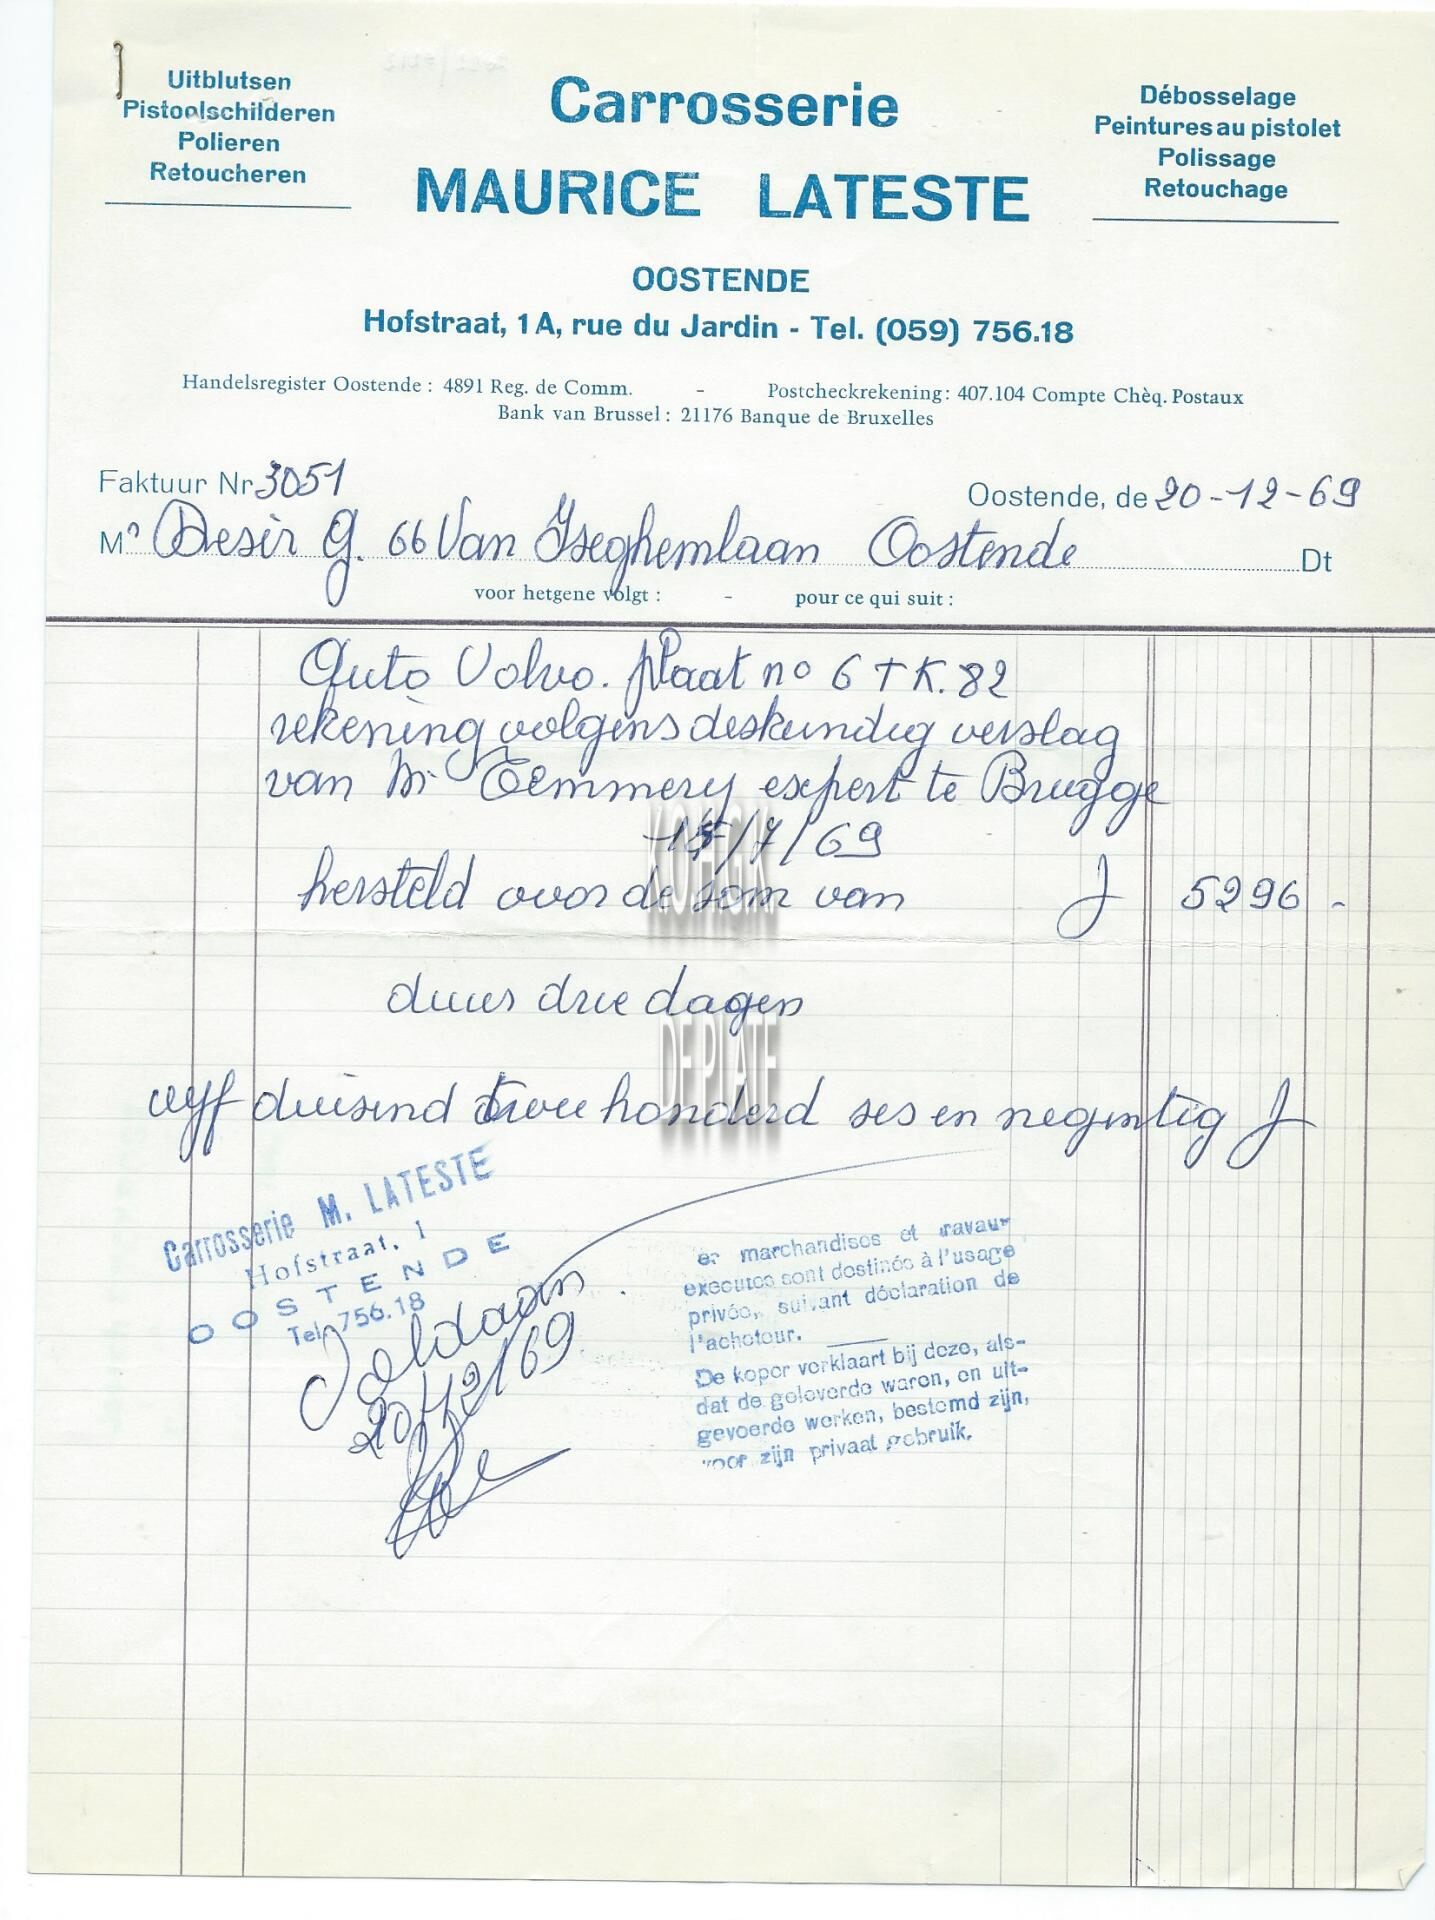 Uitblutsen
Pistoolschilderen
Polieren
Retoucheren
Carrosserie
MAURICE LATESTE
Débosselage
Peintures au pistolet
Polissage
Retouchage
OOSTENDE
Hofstraat, 1A, rue du Jardin - Tel. (059) 756.18
Handelsregister Oostende : 4891 Reg. de Comm. - Postcheckrekening : 407.104 Compte Chèq. Postaux
Bank van Brussel : 21176 Banque de Bruxelles
Faktuur Nr 3051
Oostende, de 20-12-69
Mr Desir G. 66 Van Iseghemlaan Oostende Dt
voor hetgene volgt : - pour ce qui suit :
Auto Volvo. plaat no 6 T K. 82
rekening volgens deskundig verslag
van Mr expert te Brugge
15/7/69
hersteld voor de som van f 5296 -
duur drie dagen
vyf duisend twee honderd ses en negentig f
Carrosserie M. LATESTE
Hofstraat, 1
OOSTENDE
Tel. 756.18
Voldaan
20/12/69
marchandises et travaux
executés sont destinés à l'usage
privée, suivant déclaration de
l'acheteur.
De koper verklaart bij deze, als-
dat de geleverde waren, en uit-
gevoerde werken, bestemd zijn,
voor zijn privaat gebruik.
KOHGK
DE PLATE